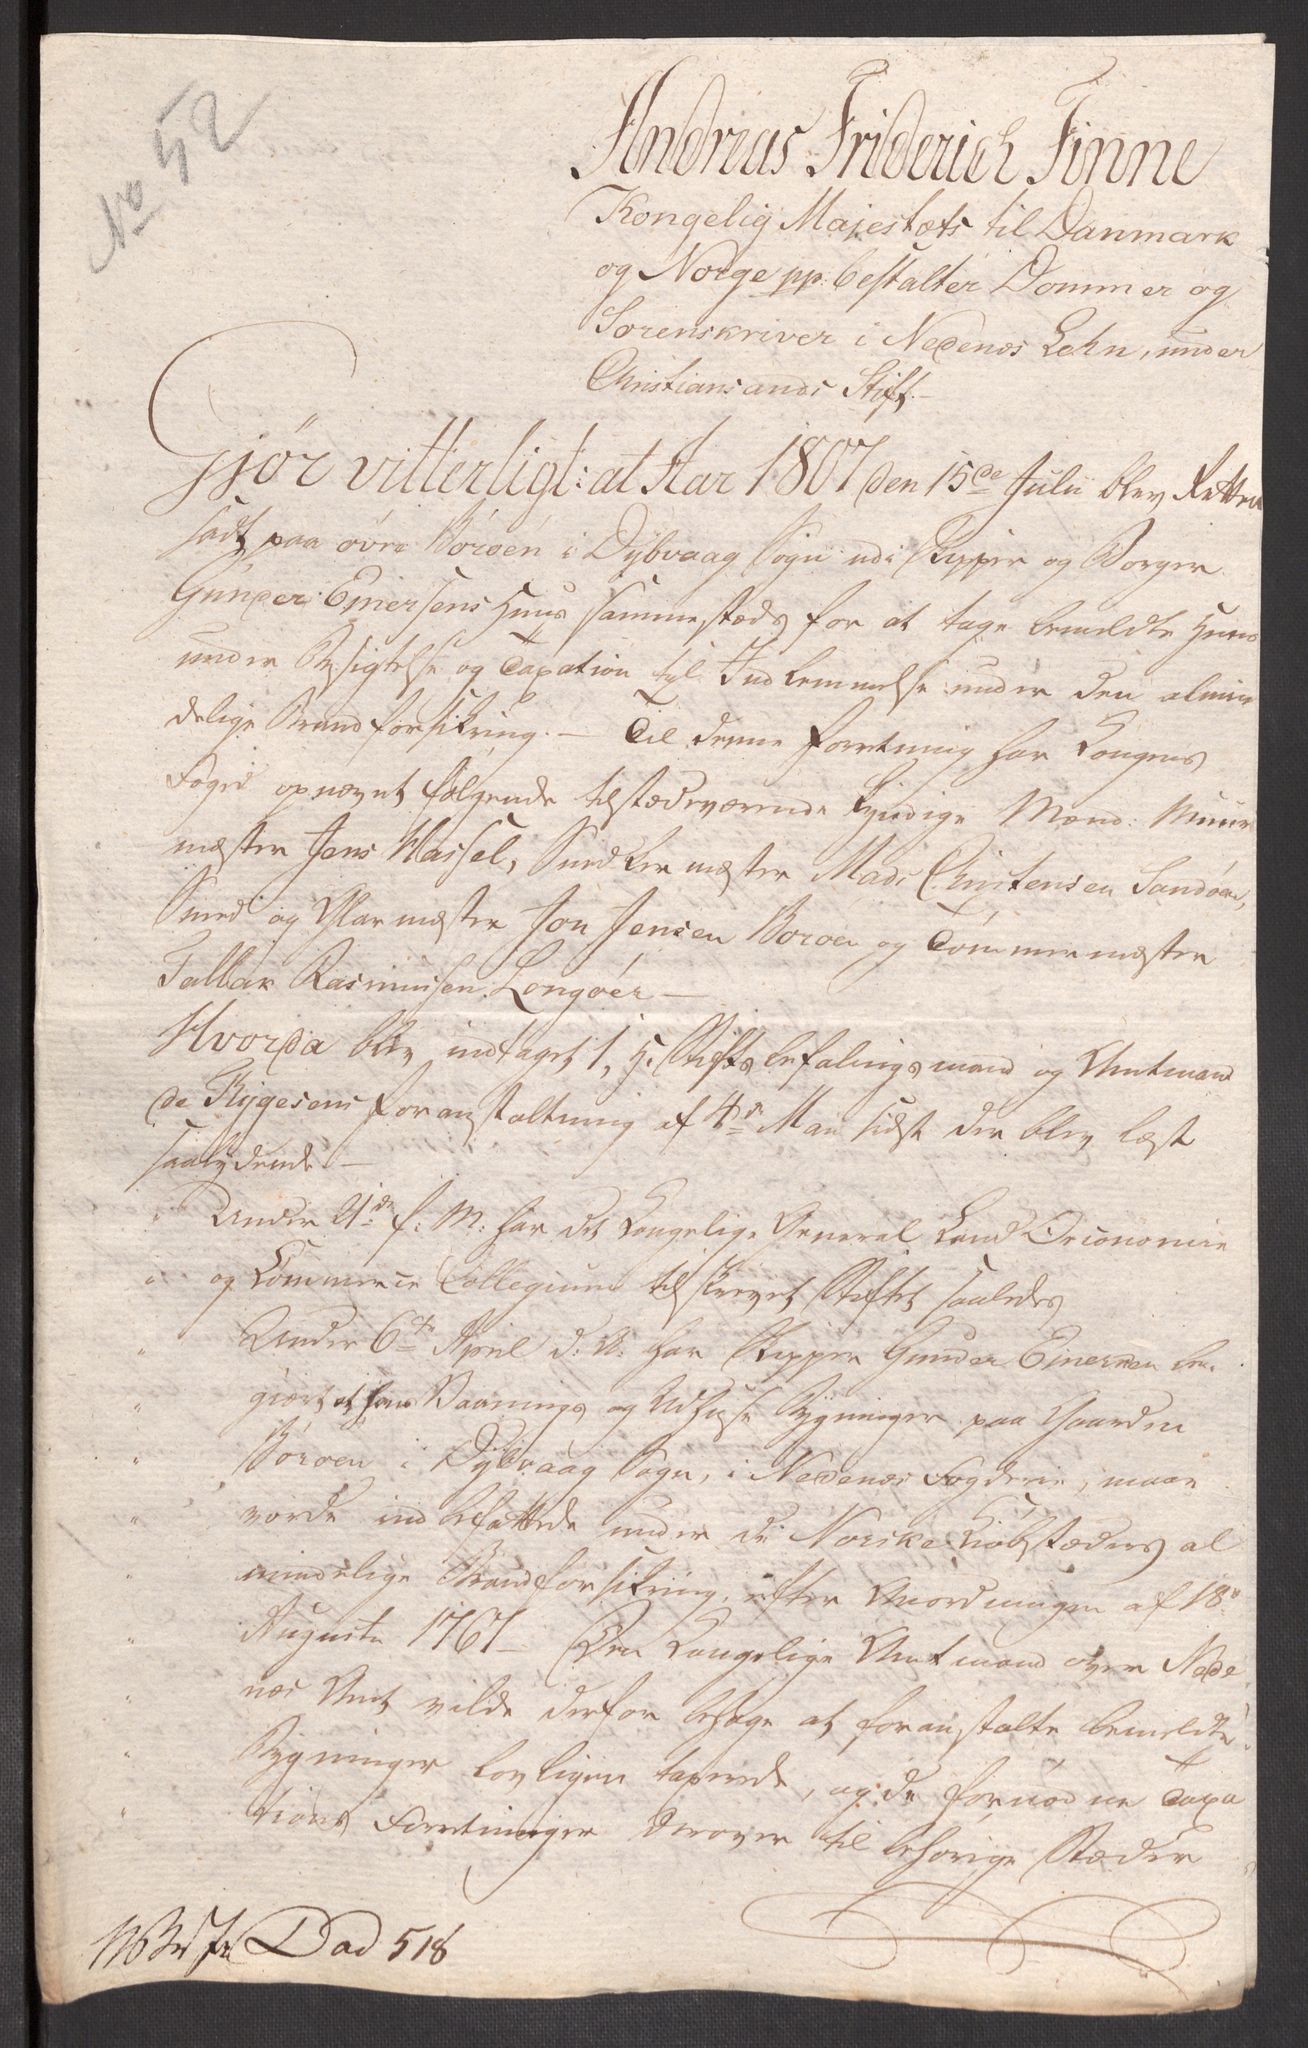 No 52
Andreas Friderich Finne
Kongelig Majestæts til Danmark
og Norge pp: bestalter Dommer og
Sorenskriver i Nedenes Lehn, under
Christiansands Stift.
Gjør vitterligt: at Aar 1807 den 15de Julii blev Retten
sadt paa øvre Borøen i Dybvaag Sogn udi Skipper og Borger
Gunder Einersens Huus sammesteds for at tage bemeldte Huus
under Besigtelse og Taxation til Indlemmelse under den almin
delige Brandforsikring. — Til denne Forretning har Kongens
Foged opnævnt følgende tilstædeværende kyndige Mænd: Muur
mæster Jens Hassel, Snedkermæster Mads Christensen Sandøen,
Smed og Glarmæster Jon Jensen Borøen og Tømmermæster
Tallak Rasmusen Longøer —
Hvorda blev indtaget 1, H. Stiftsbefalingsmand og Amtmand
de Thygesens Foranstaltning af 4de Maii sidst der blev læst
saalydende —
Under 21de f: M: har det Kongelige General Land Oeconomie
og Commerce Collegium tilskrevet Stiftet saaledes
Under 6te April d: A: har Skipper Gunder Einersen be-
giært at hans Vaanings og Udhuse Bygninger paa Gaarden
Borøen i Dybvaag Sogn, i Nedenes Fogderie, maae
vorde indbefattede under de Norske Kiøbstæders al
mindelige Brandforsikring, efter Anordningen af 18de
Augusti 1767 — Den Kongelige Amtmand over Nede
nes Amt vilde derfor behage at foranstalte bemeldte
Bygninger lovligen taxerede, og de fornødne Taxa
tions Forretninger derover til behørige Stæder
Dad 518